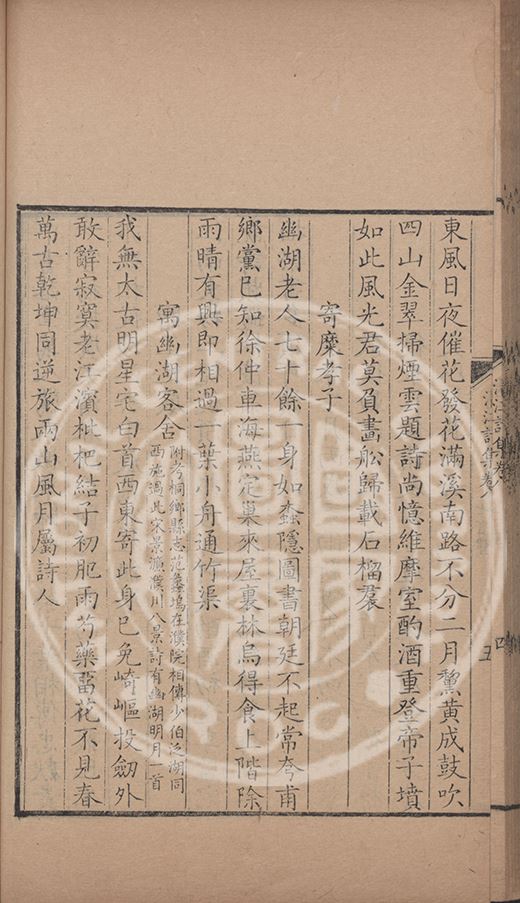 東風日夜催花發花滿溪南路不分二月鸝黃成鼓吹
四山金翠掃煙雲題詩尚憶維摩室酌酒重登帝子墳
如此風光君莫負畫船歸載石榴裠
寄糜孝子
幽湖老人七十餘一身如蠧隱圖書朝廷不起常夸甫
鄉黨已知徐仲車海燕定巢來屋裏林烏得食上階除
雨晴有興即相過一葉小舟通竹渠
寓幽湖客舍
附考桐鄉縣志范蠡塢在濮院相傳少伯泛湖同
西施過此宋景濂濮川八景詩有幽湖明月一首
我無太古明星宅白首西東寄此身已免崎嶇投劒外
敢辭寂寞老江濱枇杷結子初肥雨芍藥畱花不見春
萬古乾坤同逆旅兩山風月屬詩人